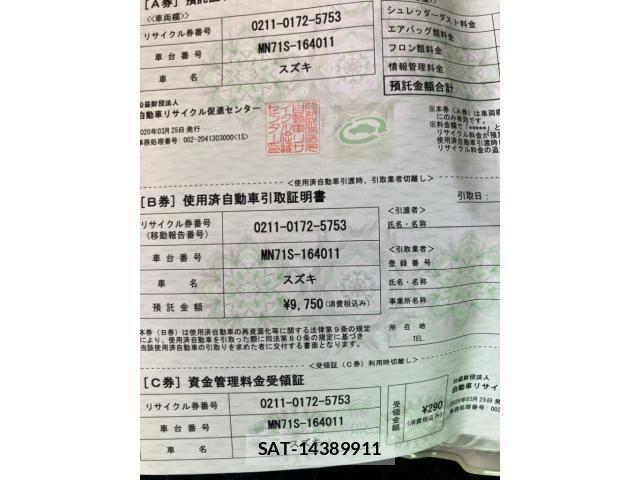 [A券] 預託証
<<車両欄>>
リサイクル券番号 0211-0172-5753
車台番号 MN71S-164011
車名 スズキ
シュレッダーダスト料金
エアバッグ類料金
フロン類料金
情報管理料金
預託金額合計
公益財団法人
自動車リサイクル促進センター
2020年03月25日 発行
事務処理番号: 002-2041303000(1S)
※本券（A券）は車両欄
にのみ有効です。
＜使用済自動車引渡時、引取業者切離し＞
[B券] 使用済自動車引取証明書
引取日：
リサイクル券番号
(移動報告番号)
0211-0172-5753
車台番号 MN71S-164011
車名 スズキ
預託金額 ¥9,750 (消費税込み)
＜引渡者＞
氏名・名称
＜引取業者＞
登録番号
氏名・名称
事業所名称
所在地
TEL.
本券（B券）は使用済自動車の再資源化等に関する法律第9条の規定
により、使用済自動車を引取った際に同法第80条の規定に基づき
当該使用済自動車の引取りを求めた者に交付する書面となります。
＜受領証（C券）利用時切離し＞
[C券] 資金管理料金受領証
リサイクル券番号 0211-0172-5753
車台番号 MN71S-164011
車名 スズキ
受領金額 ¥290
(消費税込み)
公益財団法人
自動車リサイ
2020年03月25日 発
事務処理番号: 002
SAT-14389911